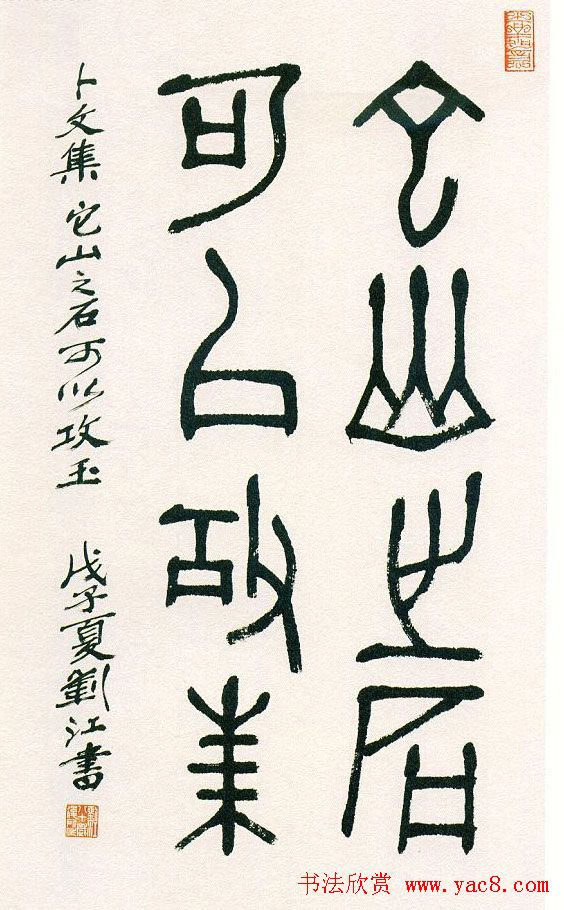 它山之石
可以攻玉
卜文集 它山之石可以攻玉 戊子夏劉江書
书法欣赏 www.yac8.com